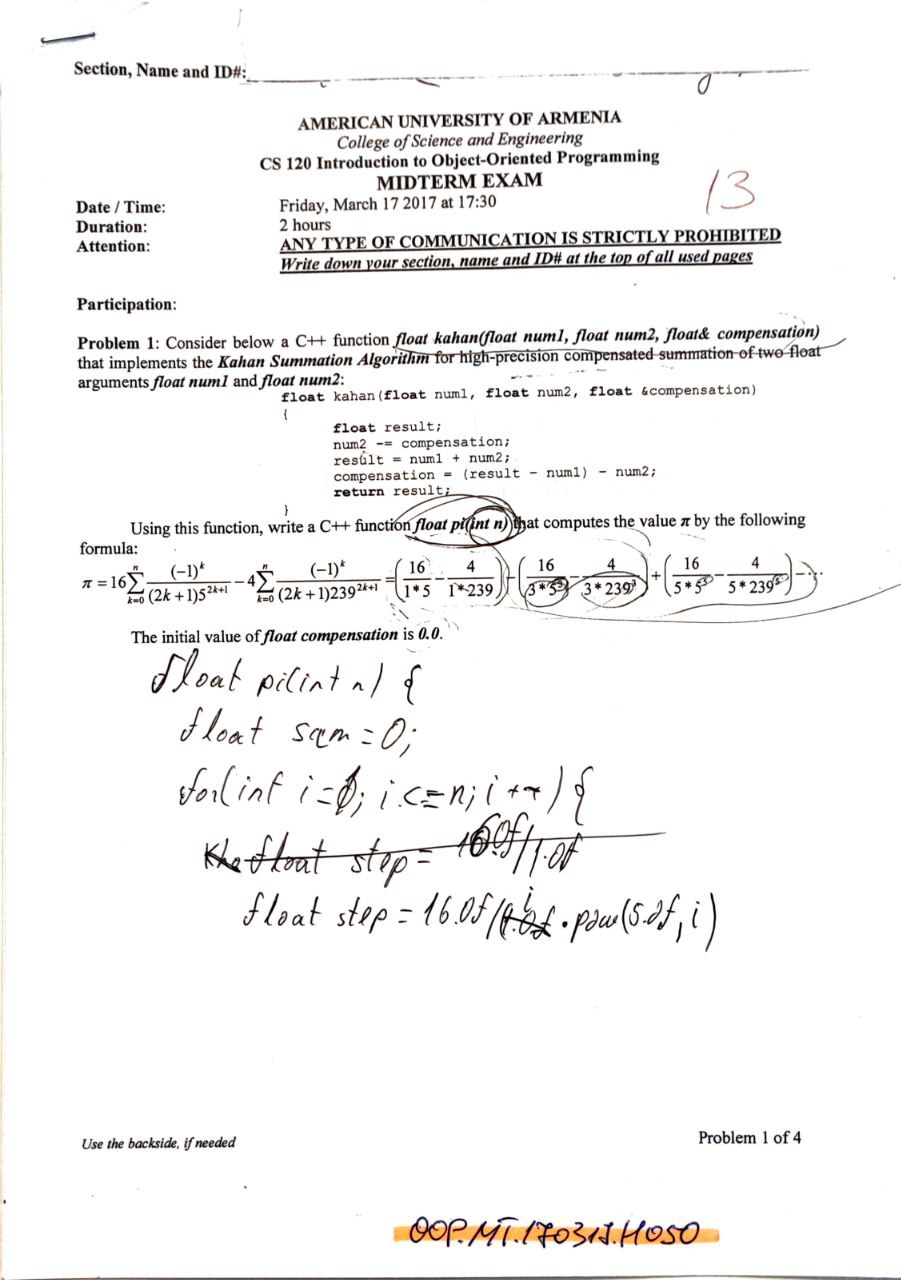 Section, Name and ID#:
AMERICAN UNIVERSITY OF ARMENIA
College of Science and Engineering
CS 120 Introduction to Object-Oriented Programming
MIDTERM EXAM
13
Date / Time: Friday, March 17 2017 at 17:30
Duration: 2 hours
Attention: ANY TYPE OF COMMUNICATION IS STRICTLY PROHIBITED
Write down your section, name and ID# at the top of all used pages
Participation:
Problem 1: Consider below a C++ function float kahan(float num1, float num2, float& compensation)
that implements the Kahan Summation Algorithm for high-precision compensated summation of two float
arguments float num1 and float num2:
float kahan(float num1, float num2, float &compensation)
{
float result;
num2 -= compensation;
result = num1 + num2;
compensation = (result - num1) - num2;
return result;
}
Using this function, write a C++ function float pi(int n) that computes the value π by the following
formula:
π = 16 ∑_{k=0}^{n} (-1)^k / ((2k+1)5^{2k+1}) - 4 ∑_{k=0}^{n} (-1)^k / ((2k+1)239^{2k+1}) = (16/(1*5) - 4/(1*239)) - (16/(3*5^3) - 4/(3*239^3)) + (16/(5*5^5) - 4/(5*239^5)) - ...
The initial value of float compensation is 0.0.
float pi(int n) {
float sum = 0;
for(int i=0; i<=n; i++) {
float step = 16.0f/1.0f
float step = 16.0f/i · pow(5.0f, i)
Use the backside, if needed
Problem 1 of 4
OOP.MT.170317.H050